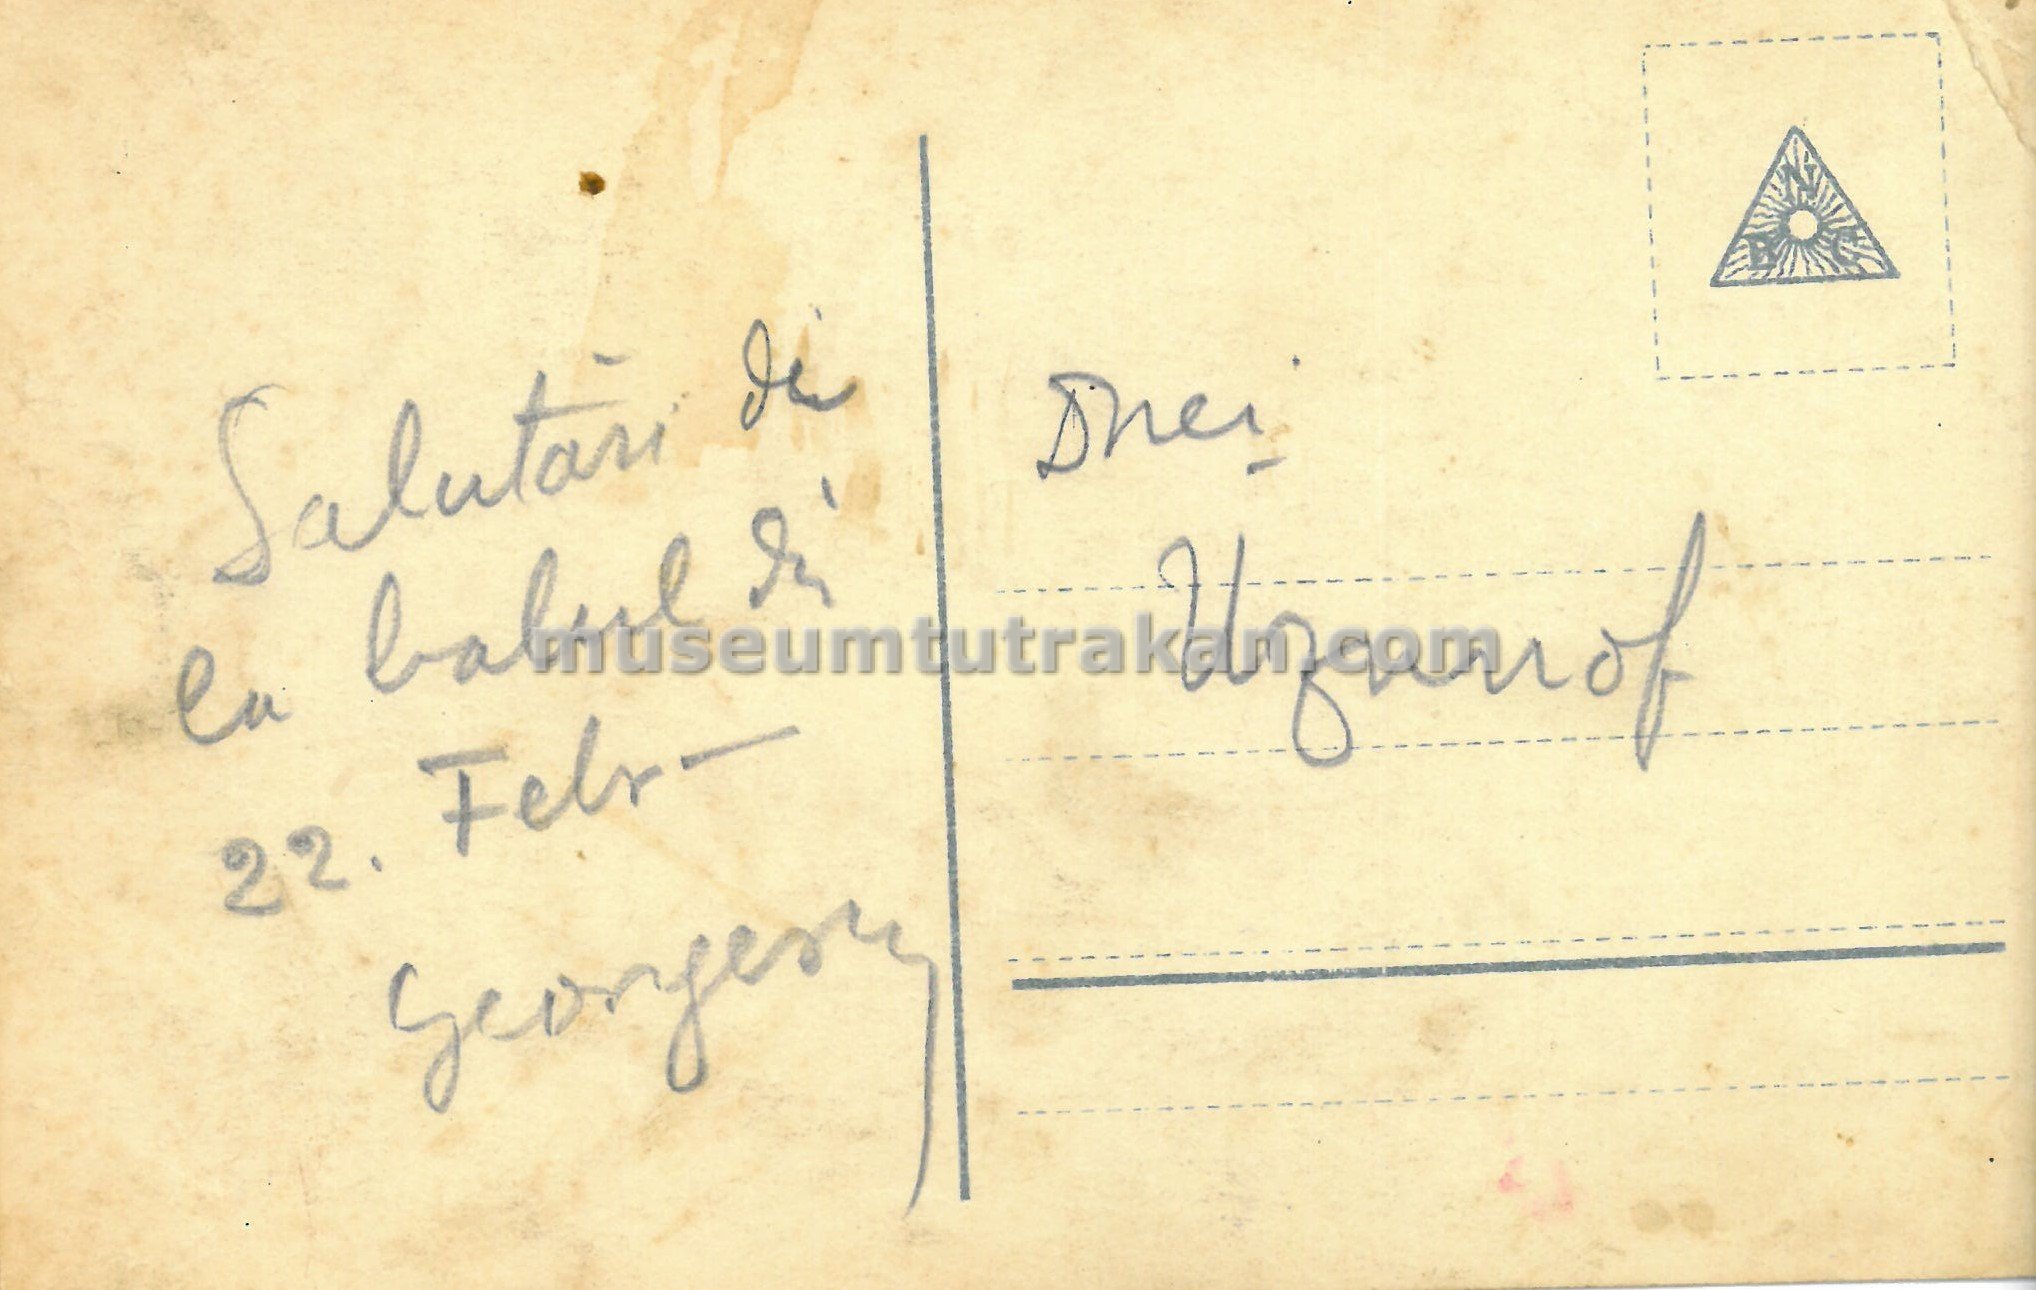 Salutări din
la balul din
22. Febr —
Georgescu
Dnei
Uzunof
N
B C
museumtutrakan.com